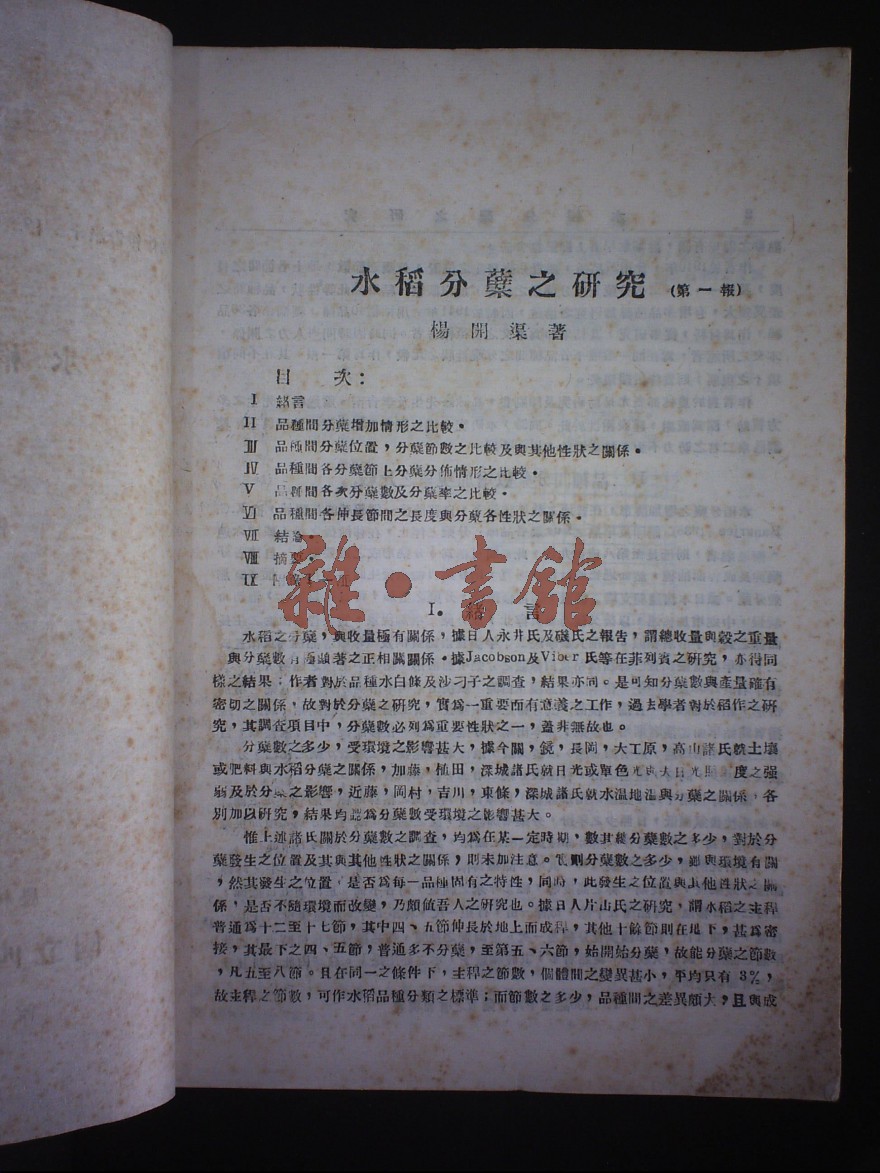 水稻分蘗之研究 (第一報)
楊開渠著
目 次:
I 緒言
II 品種間分蘗增加情形之比較。
III 品種間分蘗位置，分蘗節數之比較及與其他性狀之關係。
IV 品種間各分蘗節上分蘗分佈情形之比較。
V 品種間各次分蘗數及分蘗率之比較。
VI 品種間各伸長節間之長度與分蘗各性狀之關係。
VII 結論。
VIII 摘要。
IX
雜·書館
I。緒 言
水稻之分蘗，與收量極有關係，據日人永井氏及磯氏之報告，謂總收量與穀之重量
與分蘗數有極顯著之正相關關係。據Jacobson及Viber氏等在菲列賓之研究，亦得同
樣之結果；作者對於品種水白條及沙刁子之調查，結果亦同。是可知分蘗數與產量確有
密切之關係，故對於分蘗之研究，實爲一重要而有意義之工作，過去學者對於稻作之研
究，其調查項目中，分蘗數必列爲重要性狀之一，蓋非無故也。
分蘗數之多少，受環境之影響甚大，據今關，鏡，長岡，大工原，高山諸氏就土壤
或肥料與水稻分蘗之關係，加藤，植田，深城諸氏就日光或單色光與大日光照 度之强
弱及於分蘗之影響，近藤，岡村，吉川，東條，深城諸氏就水溫地溫與分蘗之關係，各
別加以研究，結果均認爲分蘗數受環境之影響甚大。
惟上述諸氏關於分蘗數之調查，均爲在某一定時期，數其總分蘗數之多少，對於分
蘗發生之位置及其與其他性狀之關係，則未加注意。實則分蘗數之多少，雖與環境有關
，然其發生之位置，是否爲每一品種固有之特性，同時，此發生之位置與其他性狀之關
係，是否不隨環境而改變，乃頗値吾人之研究也。據日人片山氏之研究，謂水稻之主稈
普通爲十二至十七節，其中四、五節伸長於地上而成稈，其他十餘節則在地下，甚爲密
接，其最下之四、五節，普通多不分蘗，至第五、六節，始開始分蘗，故能分蘗之節數
，凡五至八節。且在同一之條件下，主稈之節數，個體間之變異甚小，平均只有 3%，
故主稈之節數，可作水稻品種分類之標準；而節數之多少，品種間之差異頗大，且與成